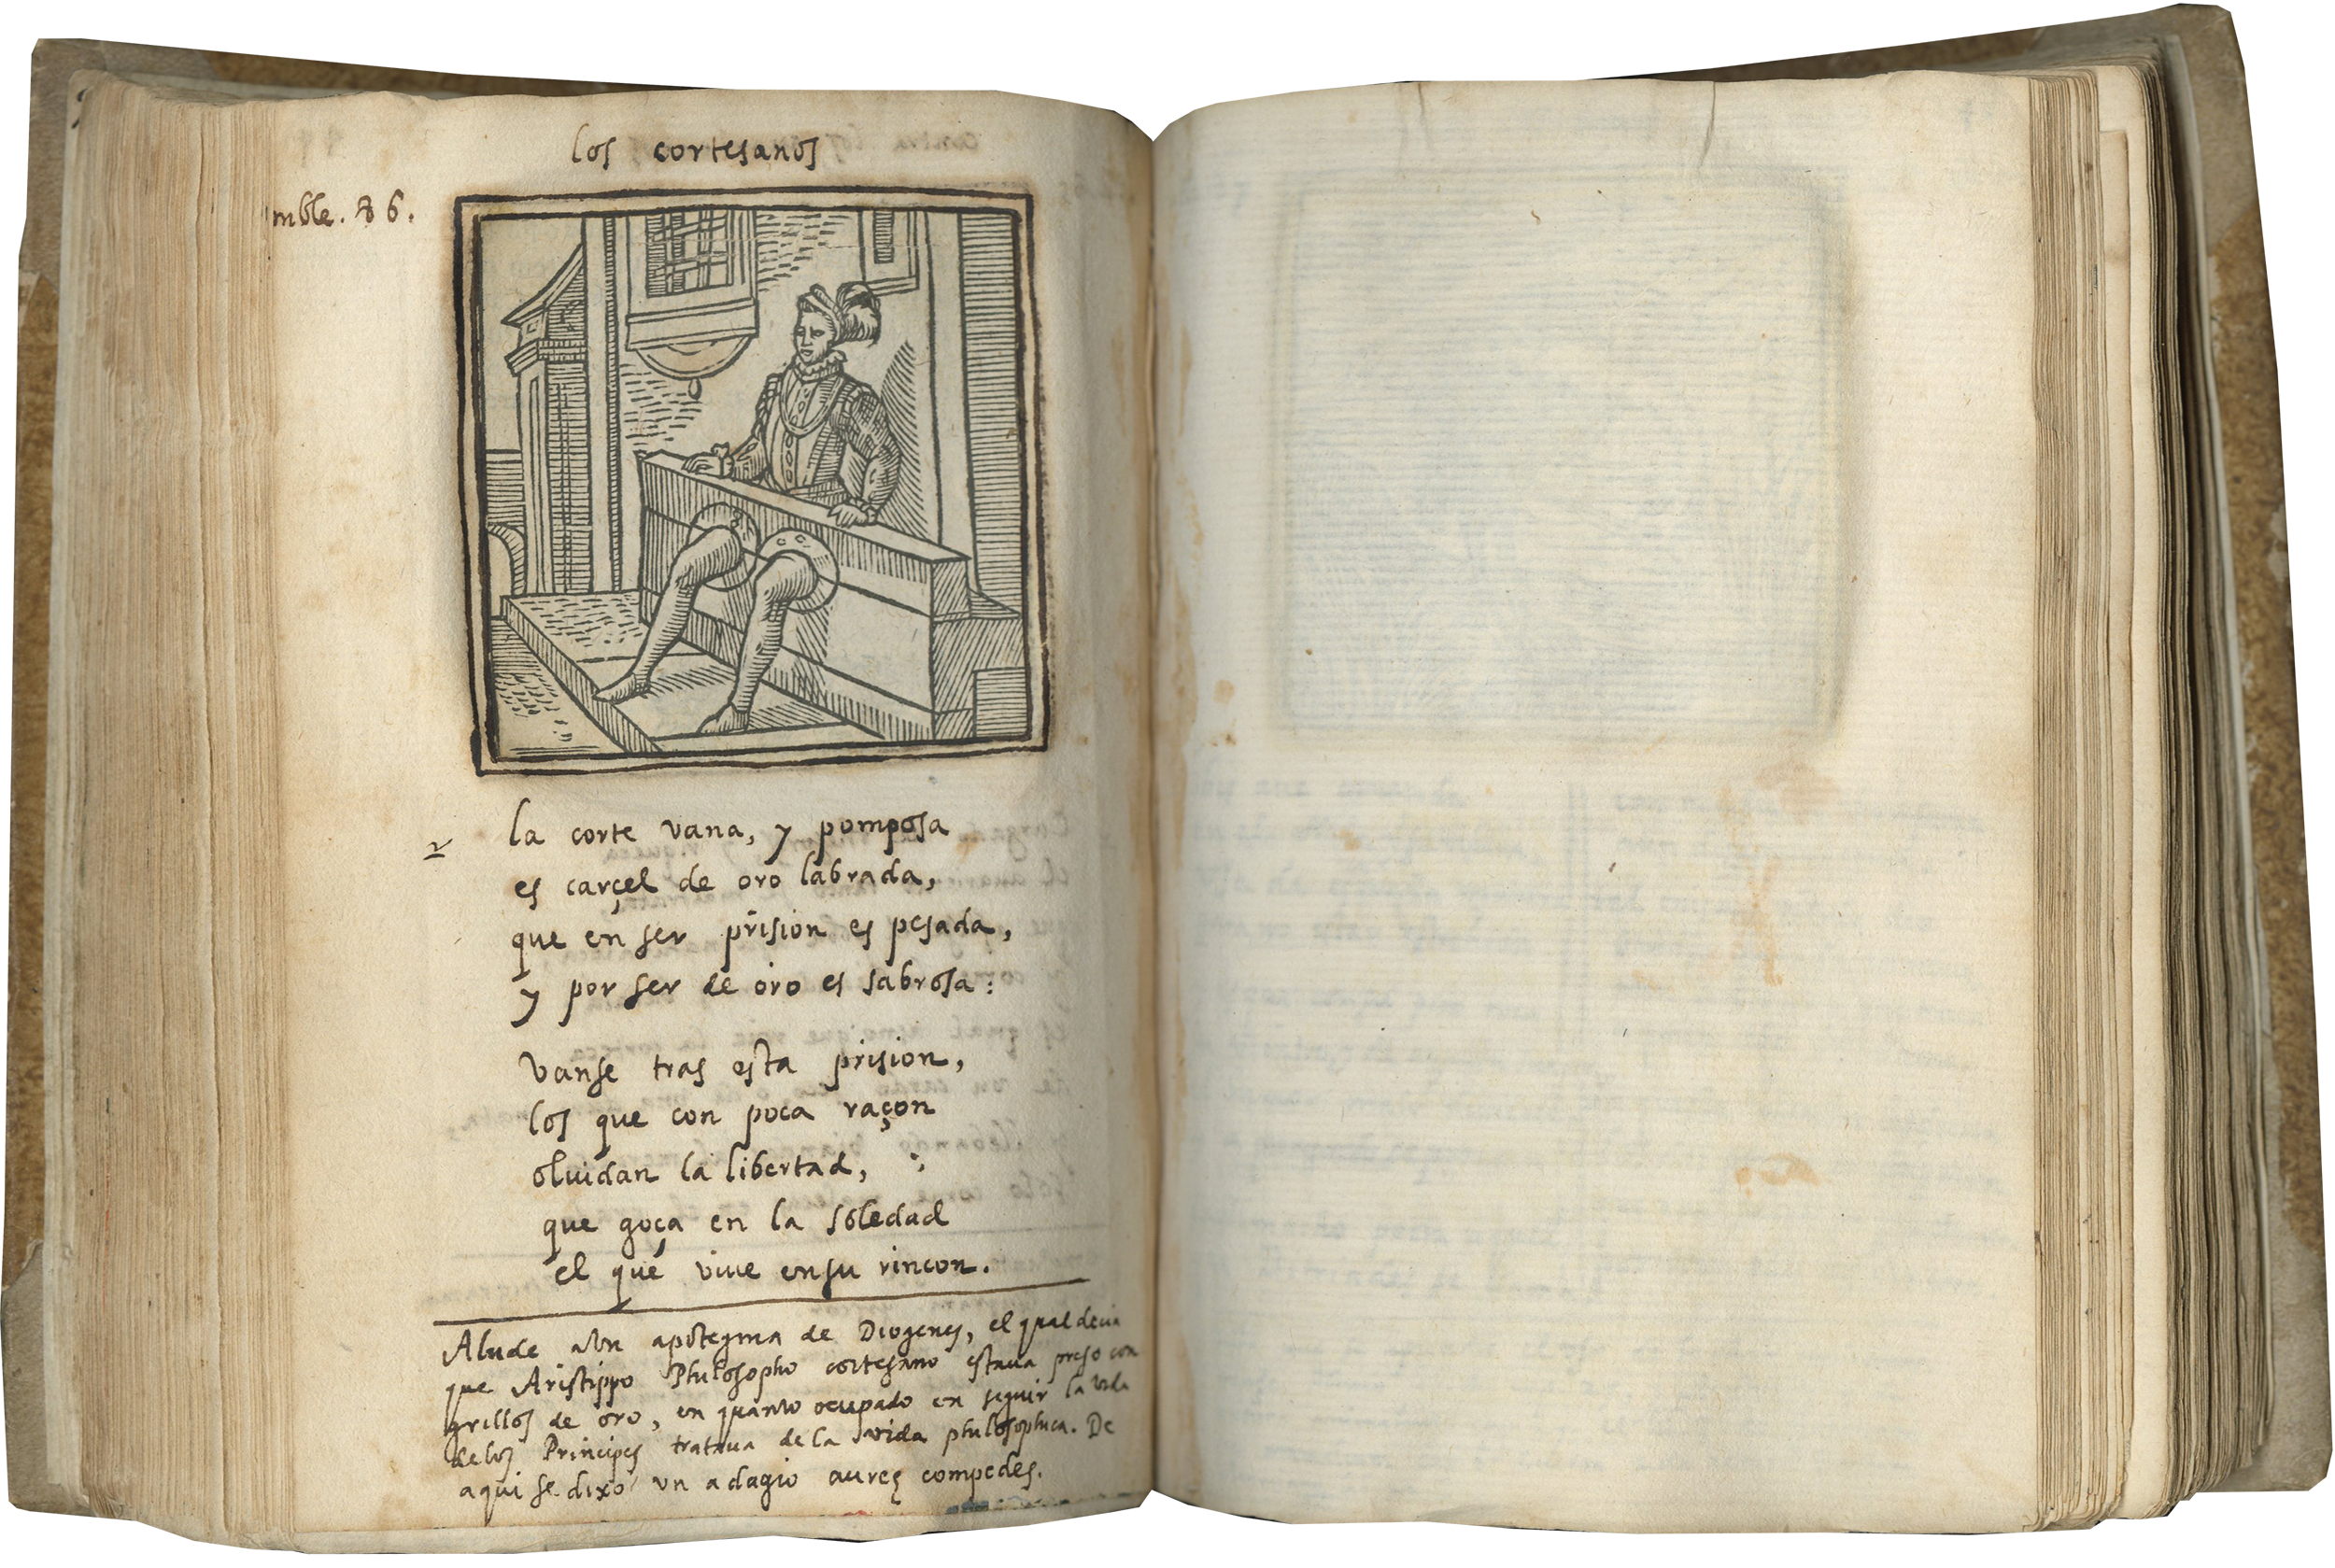 los cortesanos
mble. 86.
la corte vana, y pomposa
es carçel de oro labrada,
que en ser prision es pesada,
y por ser de oro es sabrosa:
vanse tras esta prision,
los que con poca raçon
oluidan la libertad,
que goça en la soledad
el que viue ensu rincon.
Alude a vn apotegma de Diogenes, el qual decia
que Aristippo Philosopho cortesano estaua preso con
grillos de oro, en quanto ocupado en seguir la vida
delos Principes trataua dela vida philosophica. De
aqui se dixo vn adagio aureę compedes.